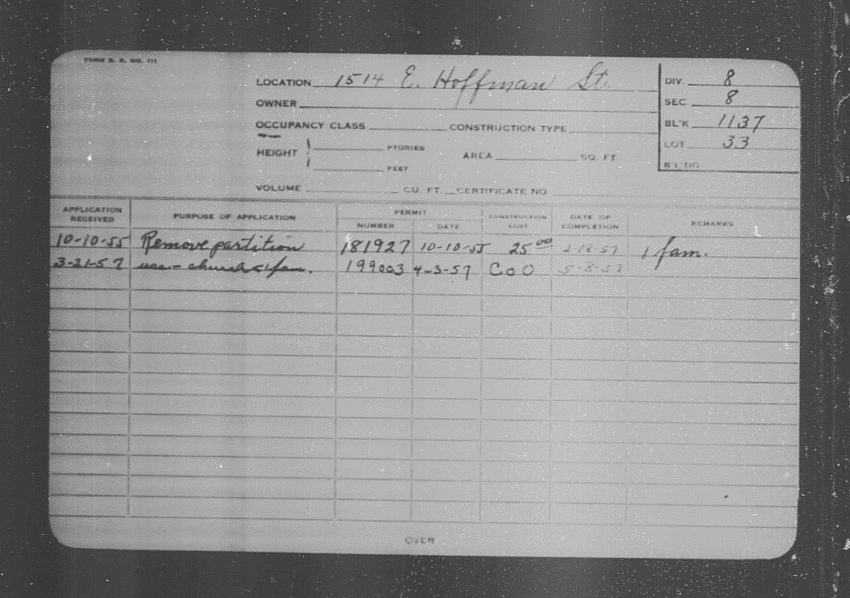 FORM B. E. NO. 111
LOCATION 1514 E. Hoffman St. DIV. 8
OWNER SEC. 8
OCCUPANCY CLASS CONSTRUCTION TYPE BL'K 1137
HEIGHT STORIES AREA SQ. FT. LOT 33
FEET B'L'DG
VOLUME CU. FT. CERTIFICATE NO
APPLICATION RECEIVED PURPOSE OF APPLICATION PERMIT NUMBER DATE CONSTRUCTION COST DATE OF COMPLETION REMARKS
10-10-55 Remove partition 181927 10-10-55 25.00 2-18-57 1 fam.
3-21-57 use - church & 1 fam. 199003 4-3-57 C o O 5-8-57
OVER